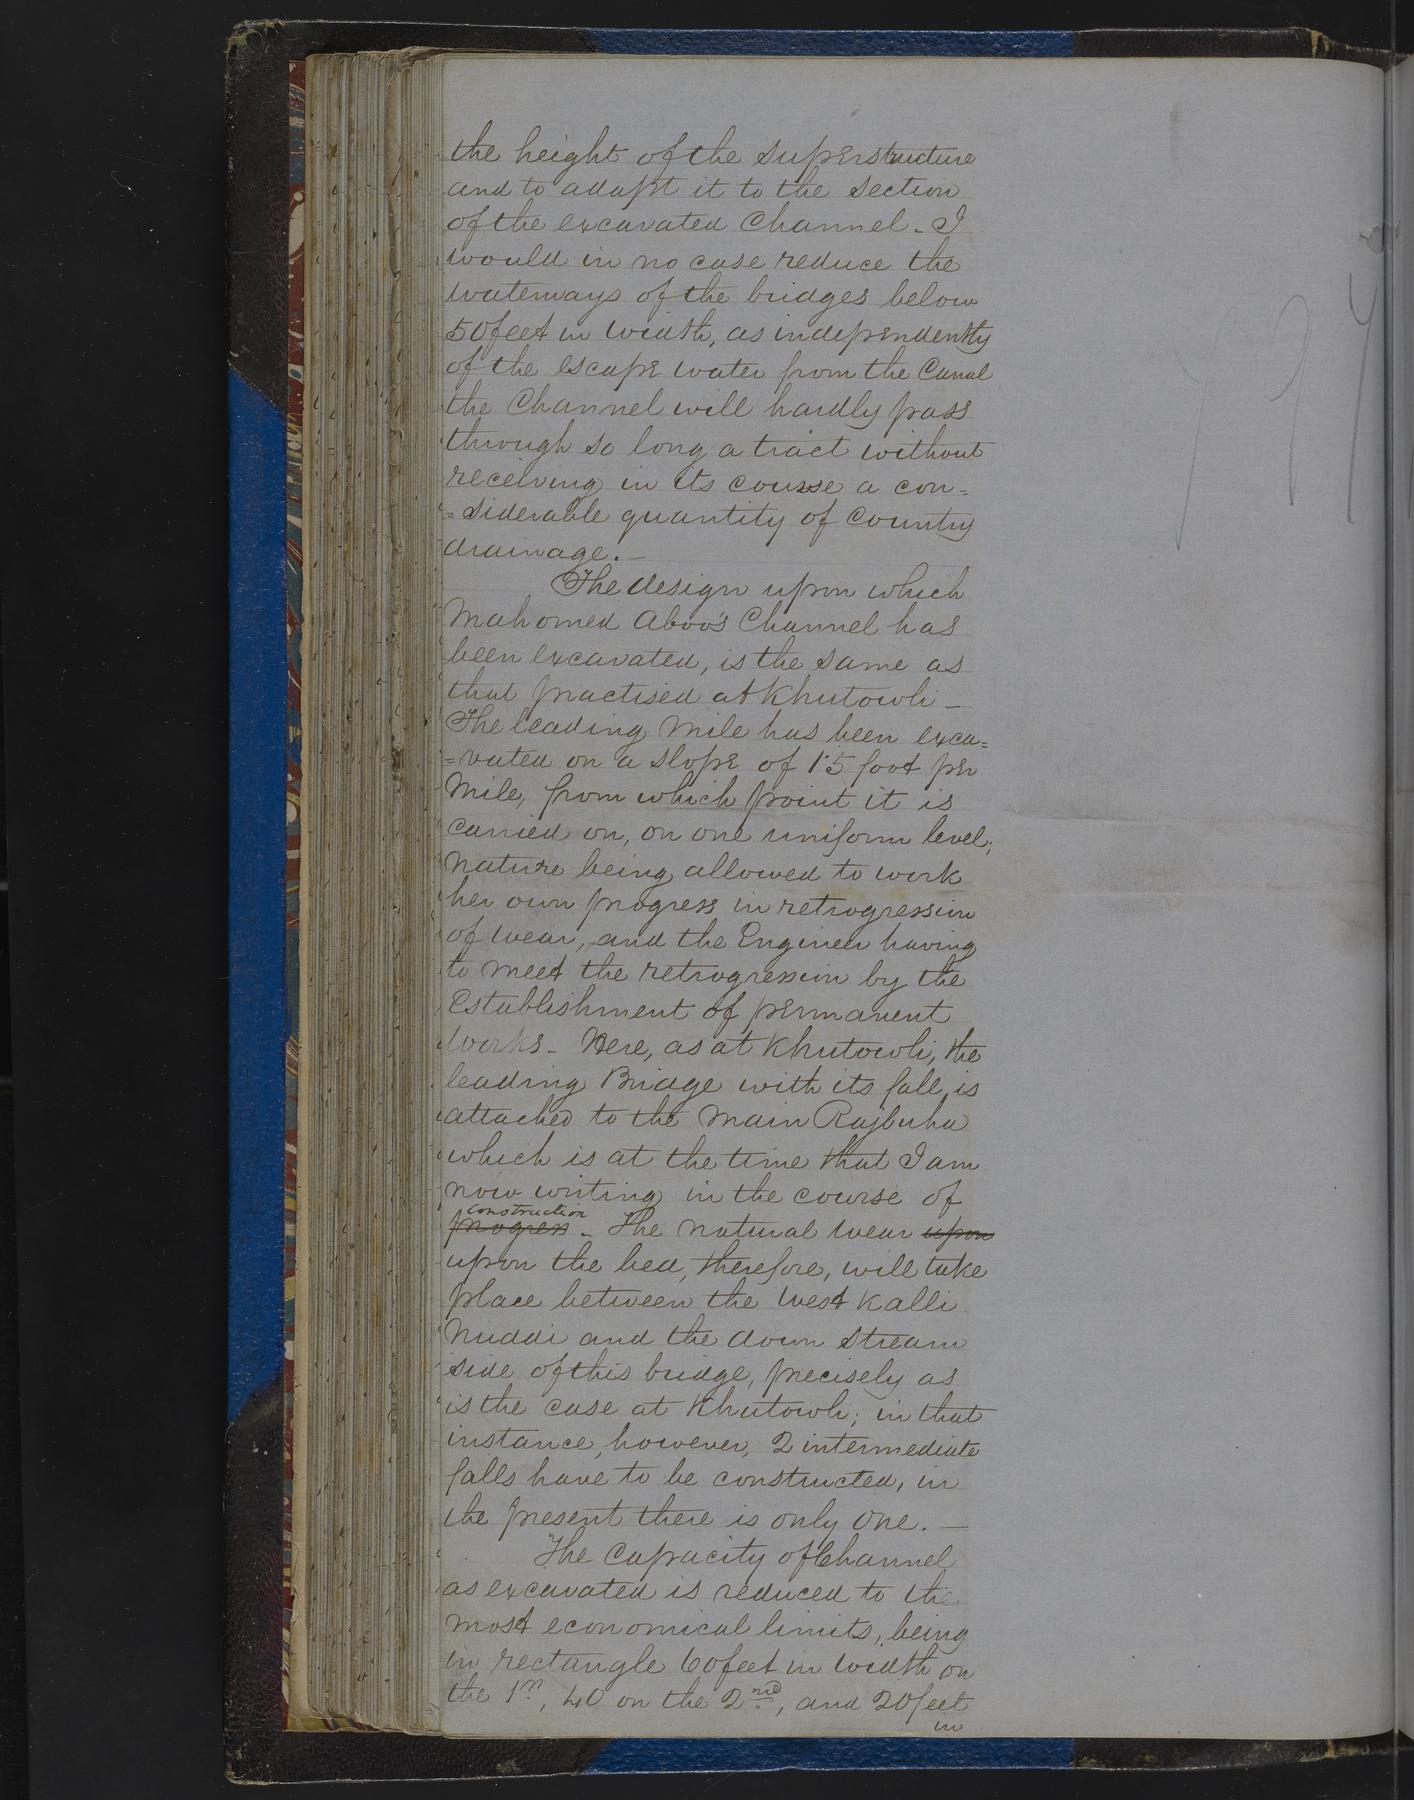 the height of the superstructure
and to adapt it to the section
of the excavated Channel. I
would in no case reduce the
waterways of the bridges below
50 feet in width, as independently
of the escape water from the Canal
the Channel will hardly pass
through so long a tract without
receiving in its course a con=
=siderable quantity of Country
drainage. —
The design upon which
Mahomed Aboo's Channel has
been excavated, is the same as
that practised at Khutowli —
The leading Mile has been exca=
=vated on a slope of 1·5 foot per
Mile, from which point it is
carried on, on one uniform level;
nature being allowed to work
her own progress in retrogression
of wear, and the Engineer having
to meet the retrogression by the
Establishment of permanent
works — Here, as at Khutowli, the
leading Bridge with its fall is
attached to the Main Rajbuha
which is at the time that I am
now writing in the course of
construction
progress. The natural wear upon
upon the bed, therefore, will take
place between the West Kalli
Nuddi and the down stream
side of this bridge, precisely as
is the case at Khutowli; in that
instance, however, 2 intermediate
falls have to be constructed, in
the present there is only one. —
The Capacity of Channel
as excavated is reduced to the
most economical limits, being
in rectangle 60 feet in width on
the 1st, 40 on the 2nd, and 20 feet
in